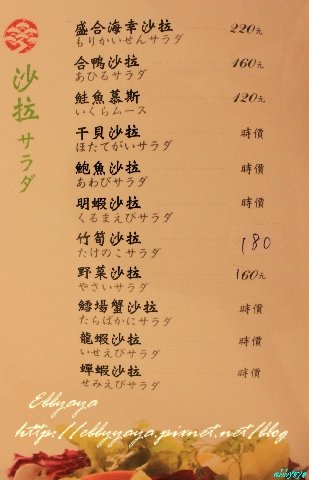 沙拉 サラダ
盛合海幸沙拉 220元
もりかいせんサラダ
合鴨沙拉 160元
あひるサラダ
鮭魚慕斯 120元
いくらムース
干貝沙拉 時價
ほたてがいサラダ
鮑魚沙拉 時價
あわびサラダ
明蝦沙拉 時價
くるまえびサラダ
竹筍沙拉 180
たけのこサラダ
野菜沙拉 160元
やさいサラダ
鱈場蟹沙拉 時價
たらばかにサラダ
龍蝦沙拉 時價
いせえびサラダ
蟬蝦沙拉 時價
せみえびサラダ
Ebbyaya
http://ebbyyaya.pixnet.net/blog